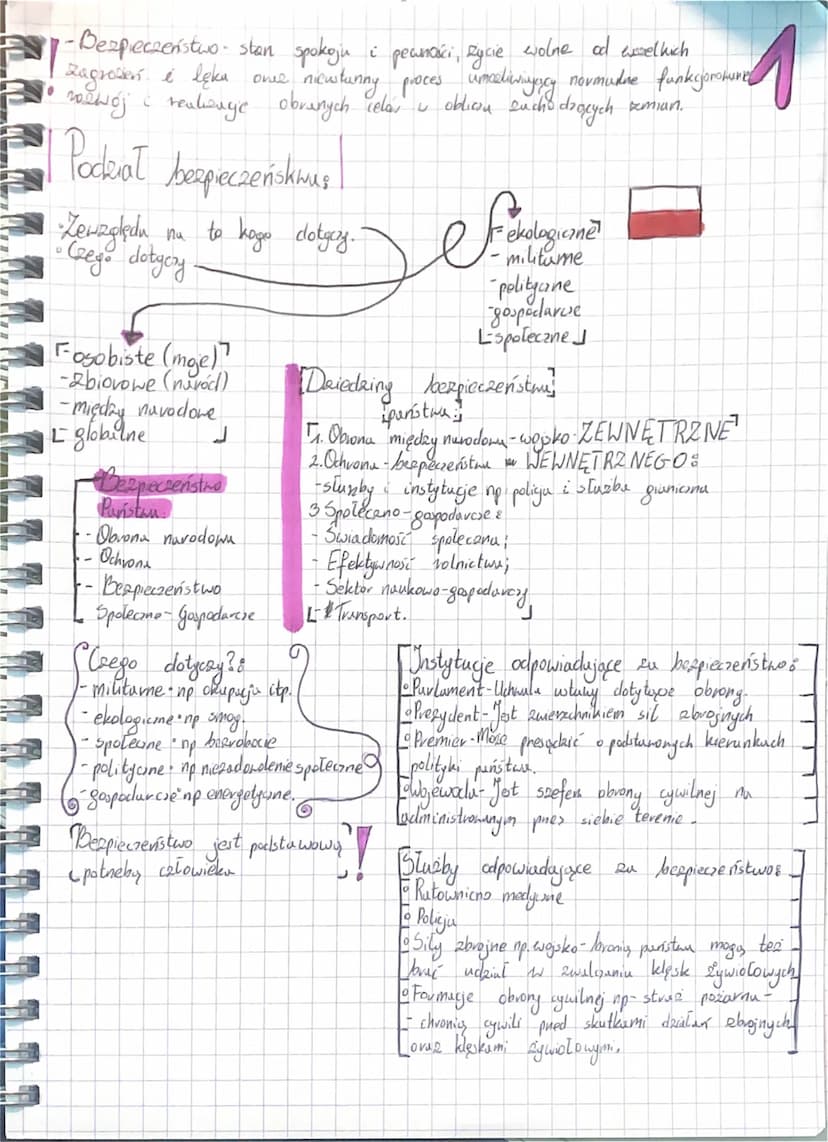 ! - Bezpieczeństwo - stan spokoju i pewności, życie wolne od wszelkich
zagrożeń i lęku oraz nieustanny proces umożliwiający normalne funkcjonowanie
rozwój i realizuje obranych celów w obliczu zachodzących zmian.
1
Podział bezpieczeństwa:
• Ze względu na to kogo dotyczy.
• Czego dotyczy
- ekologiczne
- militarne
- polityczne
- gospodarcze
- społeczne
- osobiste (moje)
- zbiorowe (naród)
- między narodowe
- globalne
Dziedziny bezpieczeństwa
państwa:
1. Obrona między narodowa - wojsko ZEWNĘTRZNE
2. Ochrona - bezpieczeństwa WEWNĘTRZNEGO:
- służby i instytucje np policja i służba graniczna
3 Społeczno-gospodarcze:
- Świadomość społeczna;
- Efektywność rolnictwa;
- Sektor naukowo-gospodarczy
- Transport.
Bezpieczeństwo
Państwa.
- Obrona narodowa
- Ochrona
- Bezpieczeństwo
Społeczno-Gospodarcze
Czego dotyczy?:
- militarne • np okupacja itp.
- ekologiczne • np smog.
- społeczne • np bezrobocie
- polityczne • np niezadowolenie społeczne
- gospodarcze • np energetyczne.
Bezpieczeństwo jest podstawową !
potrzebą człowieka
Instytucje odpowiadające za bezpieczeństwo:
• Parlament - Uchwala ustawy dotyczące obrony.
• Prezydent - Jest zwierzchnikiem sił zbrojnych
• Premier - Może przesądzić o podstawowych kierunkach
polityki państwa.
• Wojewoda - Jest szefem obrony cywilnej na
administrowanym przez siebie terenie.
Służby odpowiadające za bezpieczeństwo:
• Ratownictwo medyczne
• Policja
• Siły zbrojne np. wojsko - bronią państwa mogą też
brać udział w zwalczaniu klęsk żywiołowych
• Formacje obrony cywilnej np - straż pożarna -
- chronią cywili przed skutkami działań zbrojnych
oraz klęskami żywiołowymi.